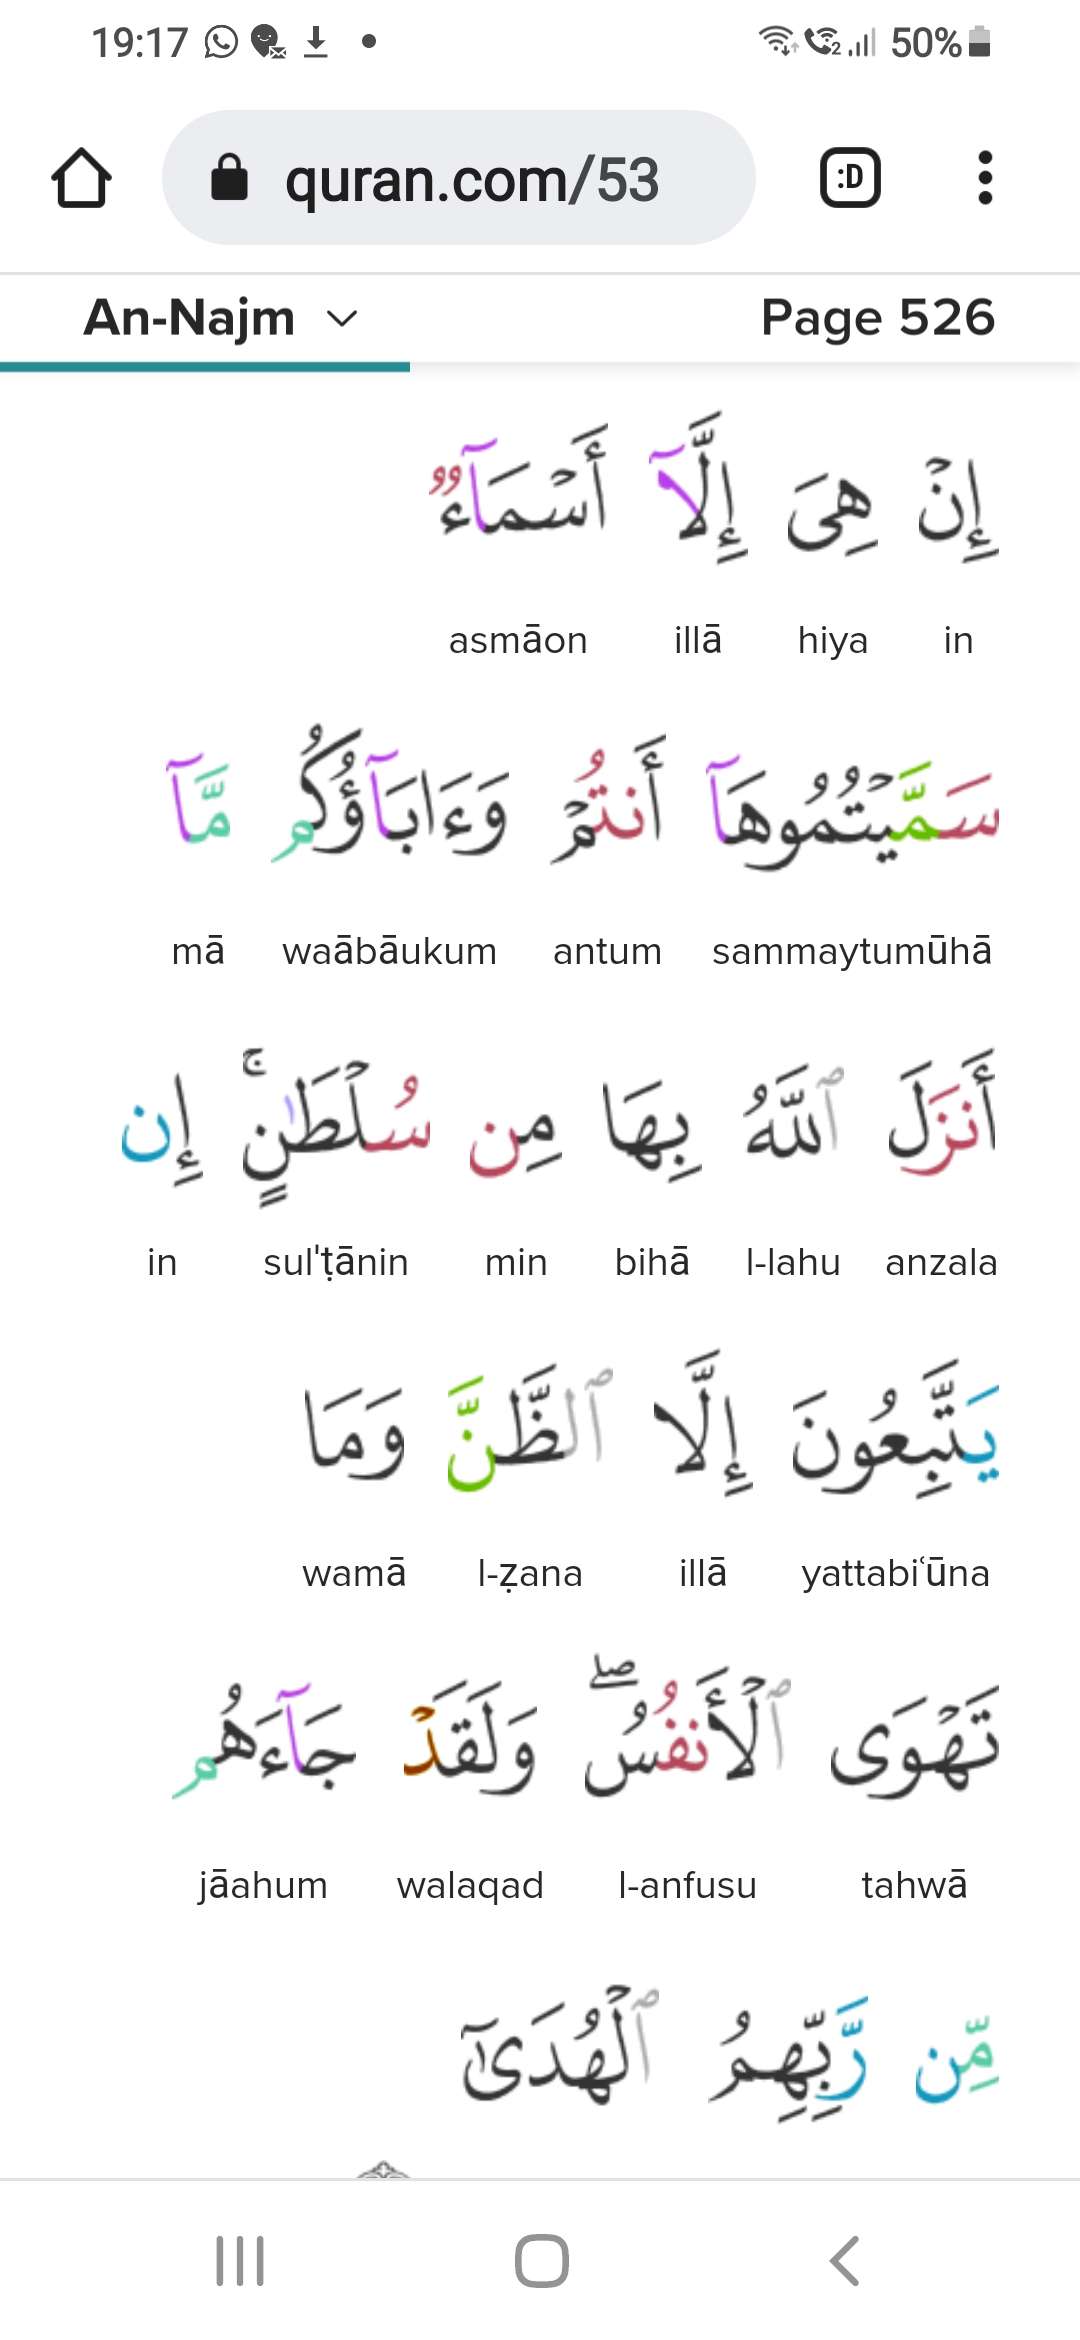 19:17 2 50%
quran.com/53 :D
An-Najm Page 526
إِنْ هِىَ إِلَّآ أَسْمَآءٌ
asmāon illā hiya in
سَمَّيْتُمُوهَآ أَنتُمْ وَءَابَآؤُكُم مَّآ
mā waābāukum antum sammaytumūhā
أَنزَلَ ٱللَّهُ بِهَا مِن سُلْطَـٰنٍ ۚ إِن
in sul'ṭānin min bihā l-lahu anzala
يَتَّبِعُونَ إِلَّا ٱلظَّنَّ وَمَا
wamā l-ẓana illā yattabiʿūna
تَهْوَى ٱلْأَنفُسُ ۖ وَلَقَدْ جَآءَهُم
jāahum walaqad l-anfusu tahwā
مِّن رَّبِّهِمُ ٱلْهُدَىٰٓ